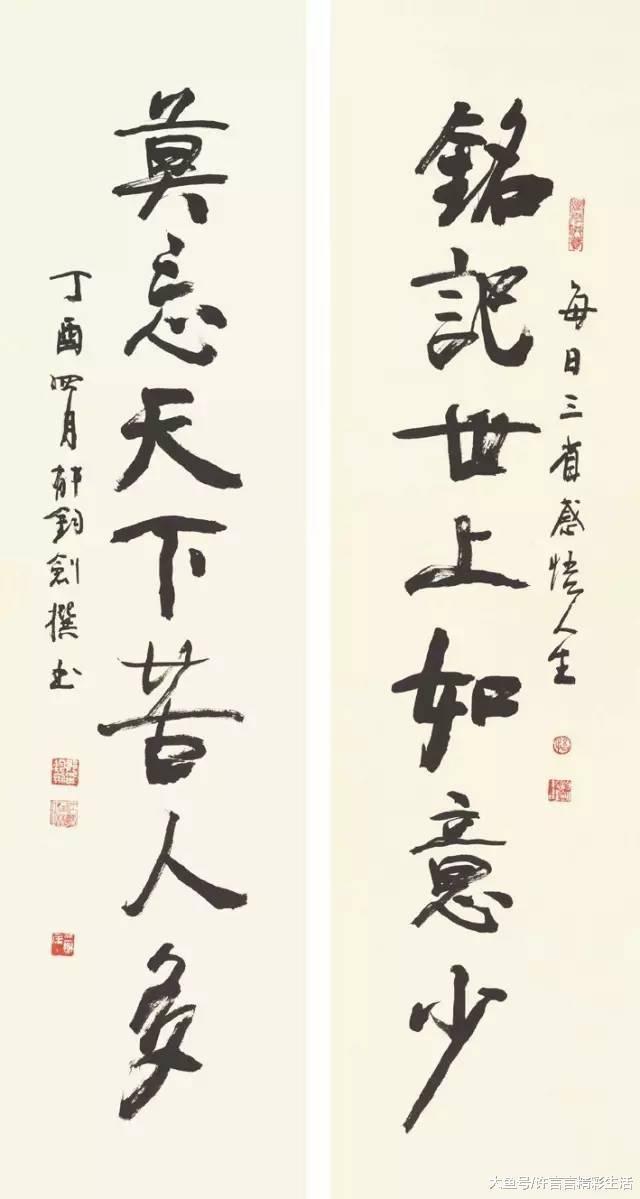 銘記世上如意少
每日三省感悟人生
莫忘天下苦人多
丁酉四月郁钧剑撰书
大鱼号/许言言精彩生活